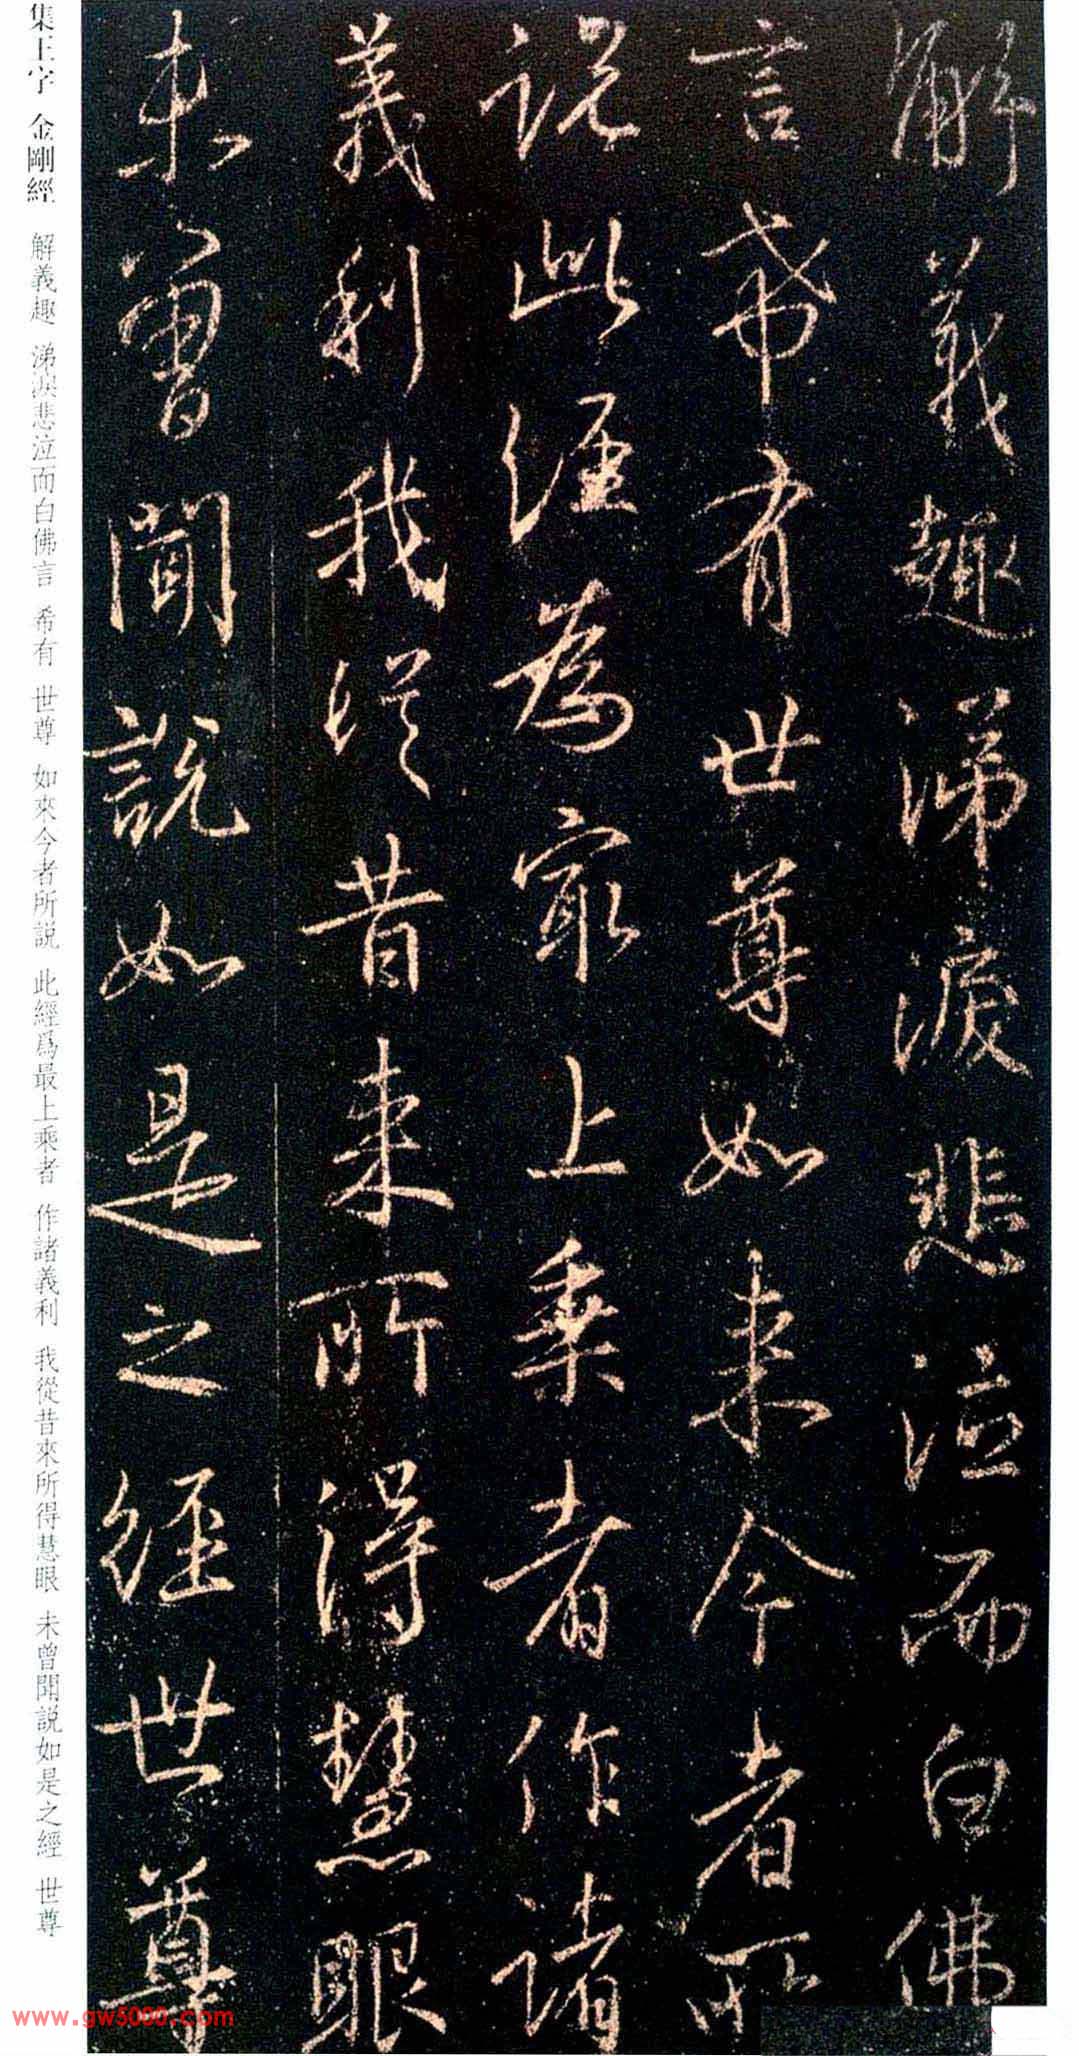 解義趣涕淚悲泣而白佛
言希有世尊如来今者所
說此經為最上乘者作諸
義利我從昔来所得慧眼
未曾聞說如是之經世尊
集王字 金剛經 解義趣 涕淚悲泣而白佛言 希有 世尊 如來今者所説 此經爲最上乘者 作諸義利 我從昔來所得慧眼 未曾聞説如是之經 世尊
www.gw5000.com